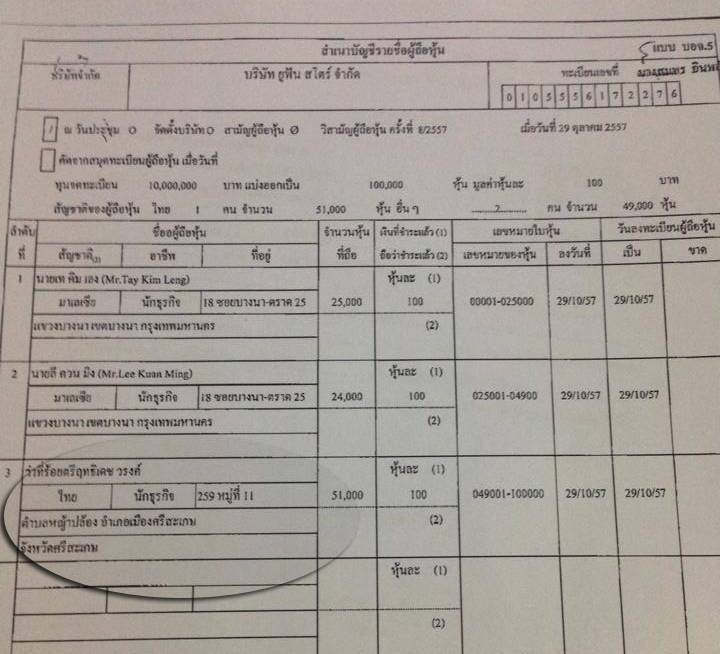 สำเนาบัญชีรายชื่อผู้ถือหุ้น
แบบ บอจ.5
บริษัท ยูฟัน สโตร์ จำกัด
ทะเบียนเลขที่
0105556172276
/ ณ วันประชุม O จัดตั้งบริษัท O สามัญผู้ถือหุ้น Ø วิสามัญผู้ถือหุ้น ครั้งที่ 8/2557 เมื่อวันที่ 29 ตุลาคม 2557
คัดจากสมุดทะเบียนผู้ถือหุ้น เมื่อวันที่
ทุนจดทะเบียน 10,000,000 บาท แบ่งออกเป็น 100,000 หุ้น มูลค่าหุ้นละ 100 บาท
สัญชาติของผู้ถือหุ้น ไทย 1 คน จำนวน 51,000 หุ้น อื่น ๆ 2 คน จำนวน 49,000 หุ้น
ลำดับ ชื่อผู้ถือหุ้น จำนวนหุ้น เงินที่ชำระแล้ว (1) เลขหมายใบหุ้น วันลงทะเบียนผู้ถือหุ้น
ที่ สัญชาติ อาชีพ ที่อยู่ ที่ถือ ถือว่าชำระแล้ว (2) เลขหมายของหุ้น ลงวันที่ เป็น ขาด
1 นายเท คิม เลง (Mr.Tay Kim Leng) หุ้นละ (1)
มาเลเซีย นักธุรกิจ 18 ซอยบางนา-ตราด 25 25,000 100 00001-025000 29/10/57 29/10/57
แขวงบางนา เขตบางนา กรุงเทพมหานคร (2)
2 นายลี ควน มิง (Mr.Lee Kuan Ming) หุ้นละ (1)
มาเลเซีย นักธุรกิจ 18 ซอยบางนา-ตราด 25 24,000 100 025001-04900 29/10/57 29/10/57
แขวงบางนา เขตบางนา กรุงเทพมหานคร (2)
3 ว่าที่ร้อยตรีฤทธิเดช วรงค์ หุ้นละ (1)
ไทย นักธุรกิจ 259 หมู่ที่ 11 51,000 100 049001-100000 29/10/57 29/10/57
ตำบลหญ้าปล้อง อำเภอเมืองศรีสะเกษ (2)
จังหวัดศรีสะเกษ
หุ้นละ (1)
(2)